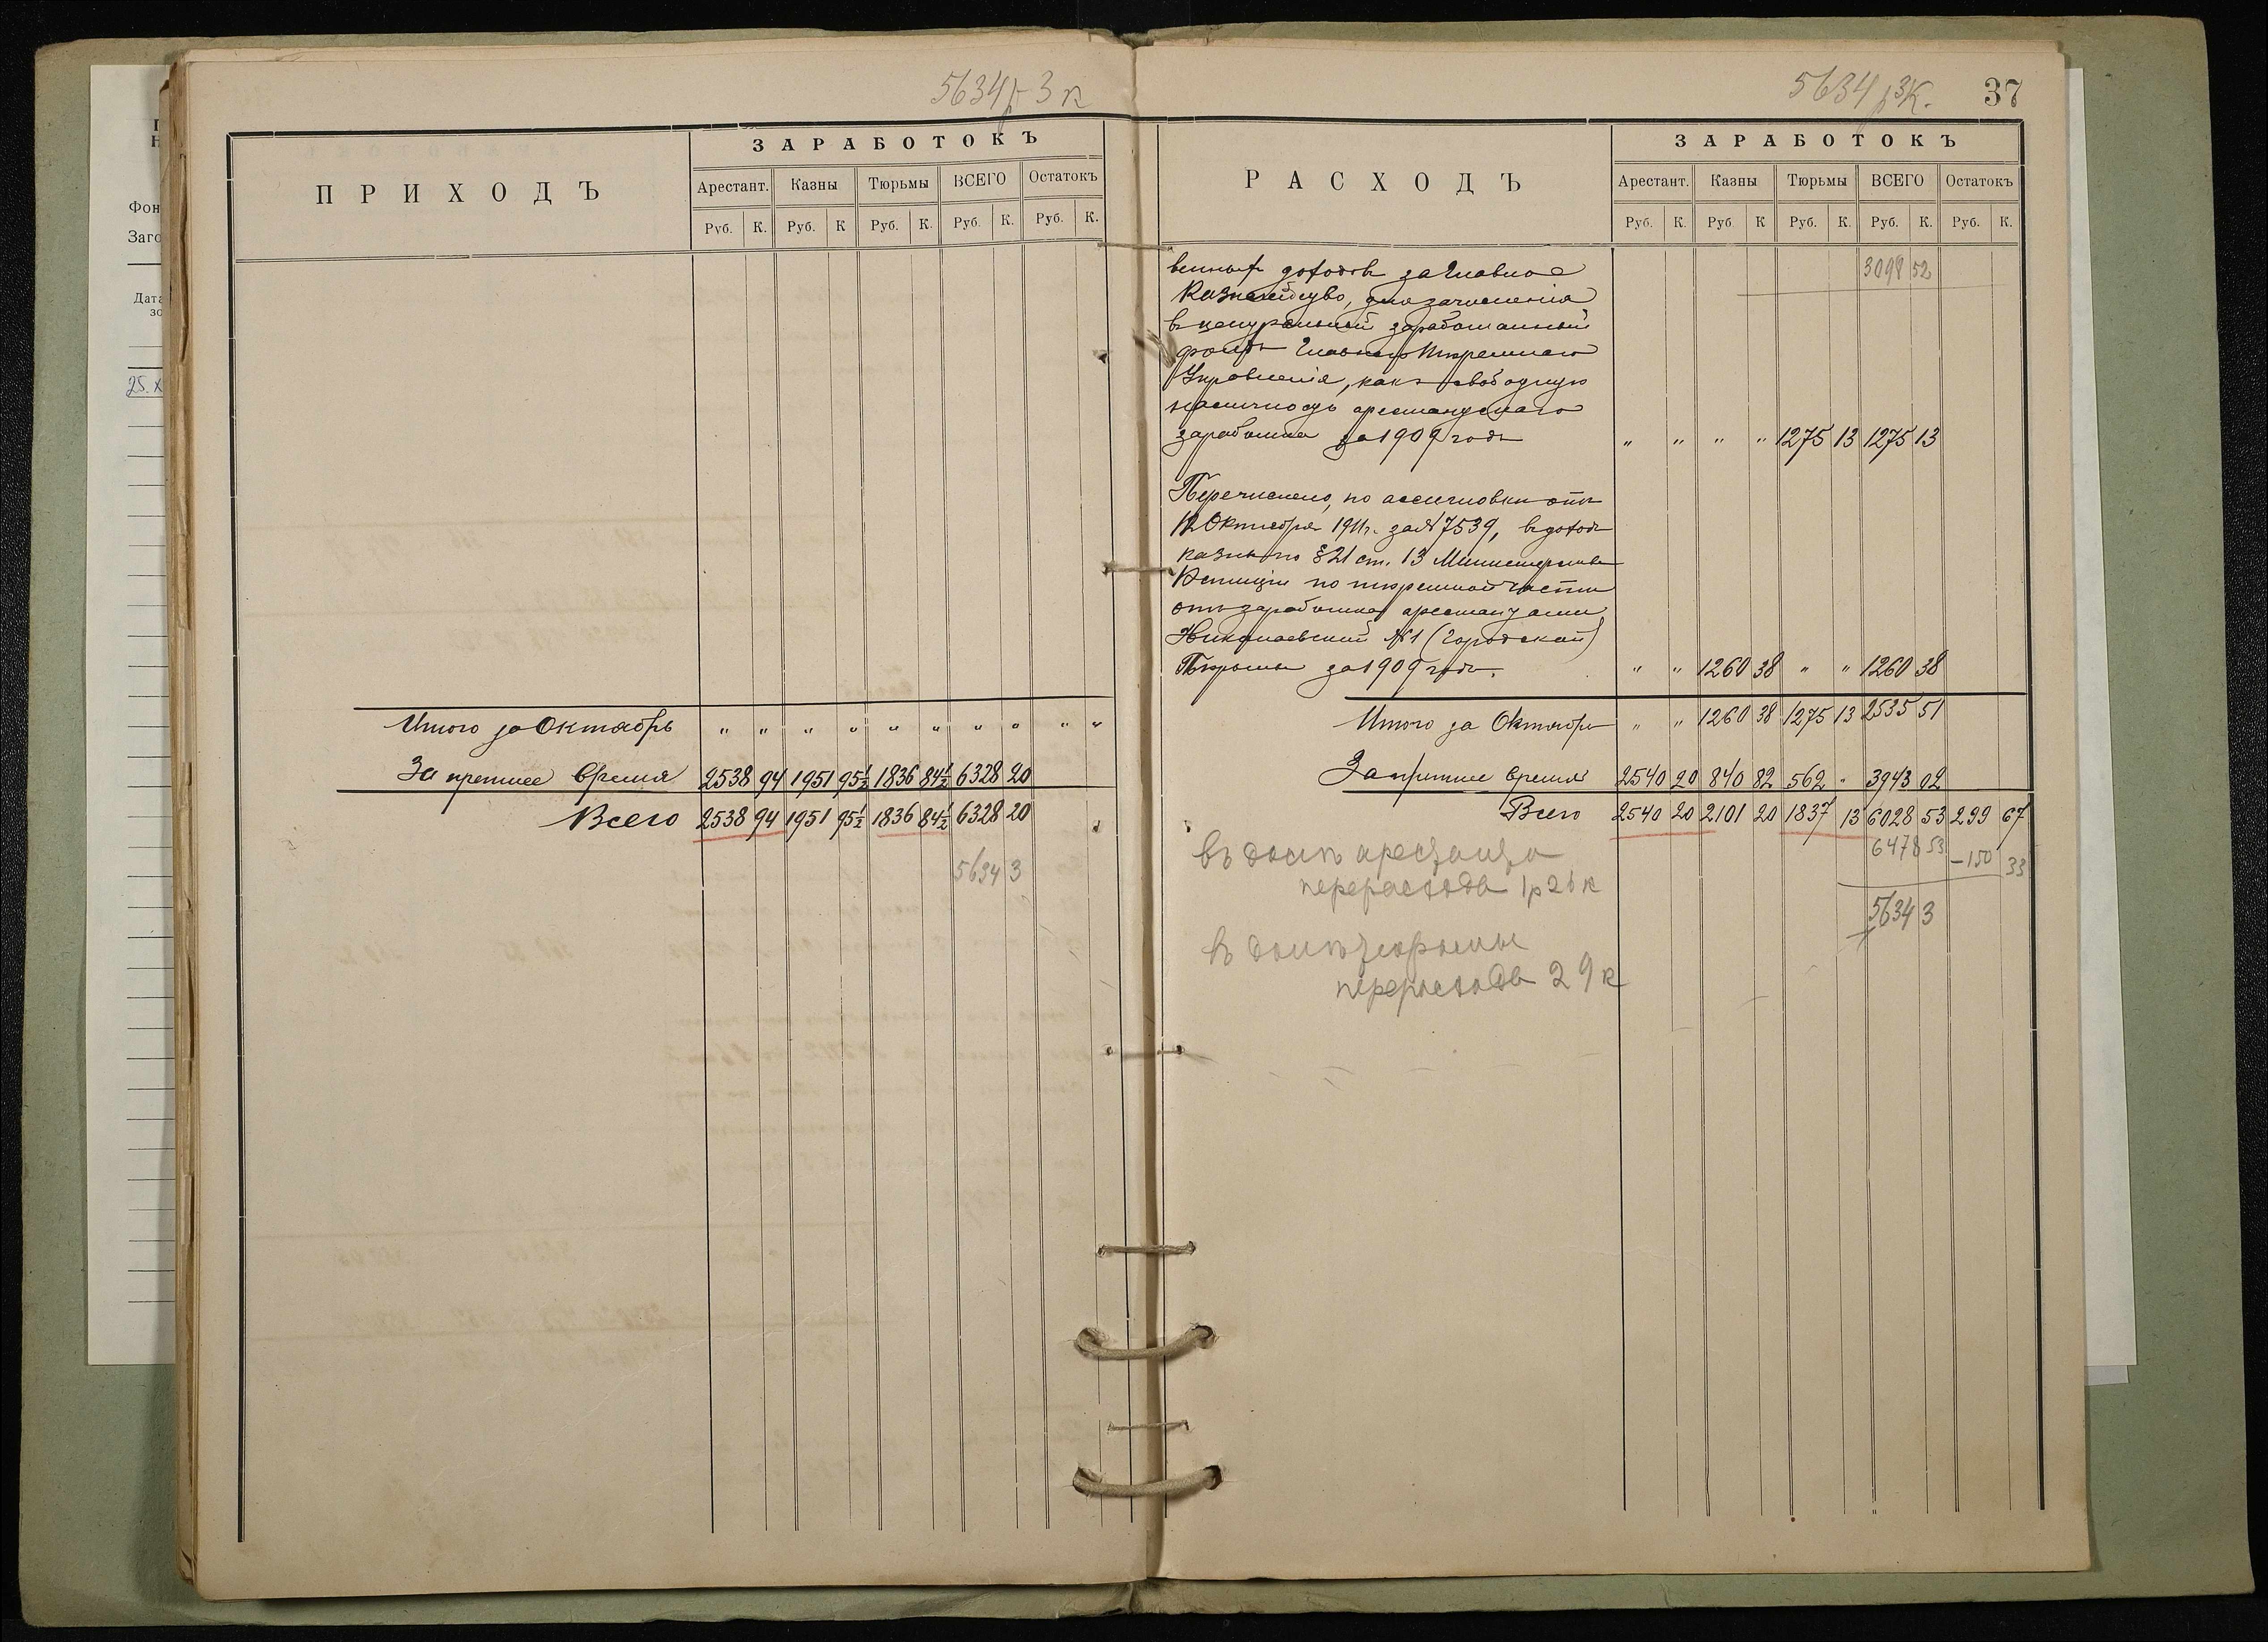 5634 р 3 к
ЗАРАБОТОКЪ
ПРИХОДЪ
Арестант. Казны Тюрьмы ВСЕГО Остатокъ
Руб. К. Руб. К Руб. К. Руб. К. Руб. К.
Итого за Октябрь " " " " " " " " " "
За прежнее время 2538 94 1951 95½ 1836 84½ 6328 20
Всего 2538 94 1951 95½ 1836 84½ 6328 20
5634 3
Фон
Заго
Дата
зс
25. X
5634 р 3к.
37
ЗАРАБОТОКЪ
РАСХОДЪ
Арестант. Казны Тюрьмы ВСЕГО Остатокъ
Руб. К. Руб К Руб. К. Руб. К. Руб. К.
венныхъ доходовъ за Главное 3098 52
Казначейство, для зачисленія
въ центральный заработанный
фондъ Главнаго Тюремнаго
Управленія, какъ свободную
наличность арестантскаго
заработка за 1909 годъ " " " " 1275 13 1275 13
Перечислено, по ассигновки отъ
12 Октября 1911г. за № 7539, въ доходъ
казны по § 21 ст. 13 Министерства
Юстиціи по тюремной части
отъ заработка арестантами
Николаевской №1 (Городской)
Тюрьмы за 1909 годъ. " " 1260 38 " " 1260 38
Итого за Октябрь " " 1260 38 1275 13 2535 51
За прежнее время 2540 20 840 82 562 " 3943 02
Всего 2540 20 2101 20 1837 13 6028 53 299 67
6478 53 -150 33
въ долъ арестанта
перерасхода 1р 26 к
5634 3
въ долъ тюрьмы
перерасхода 29 к